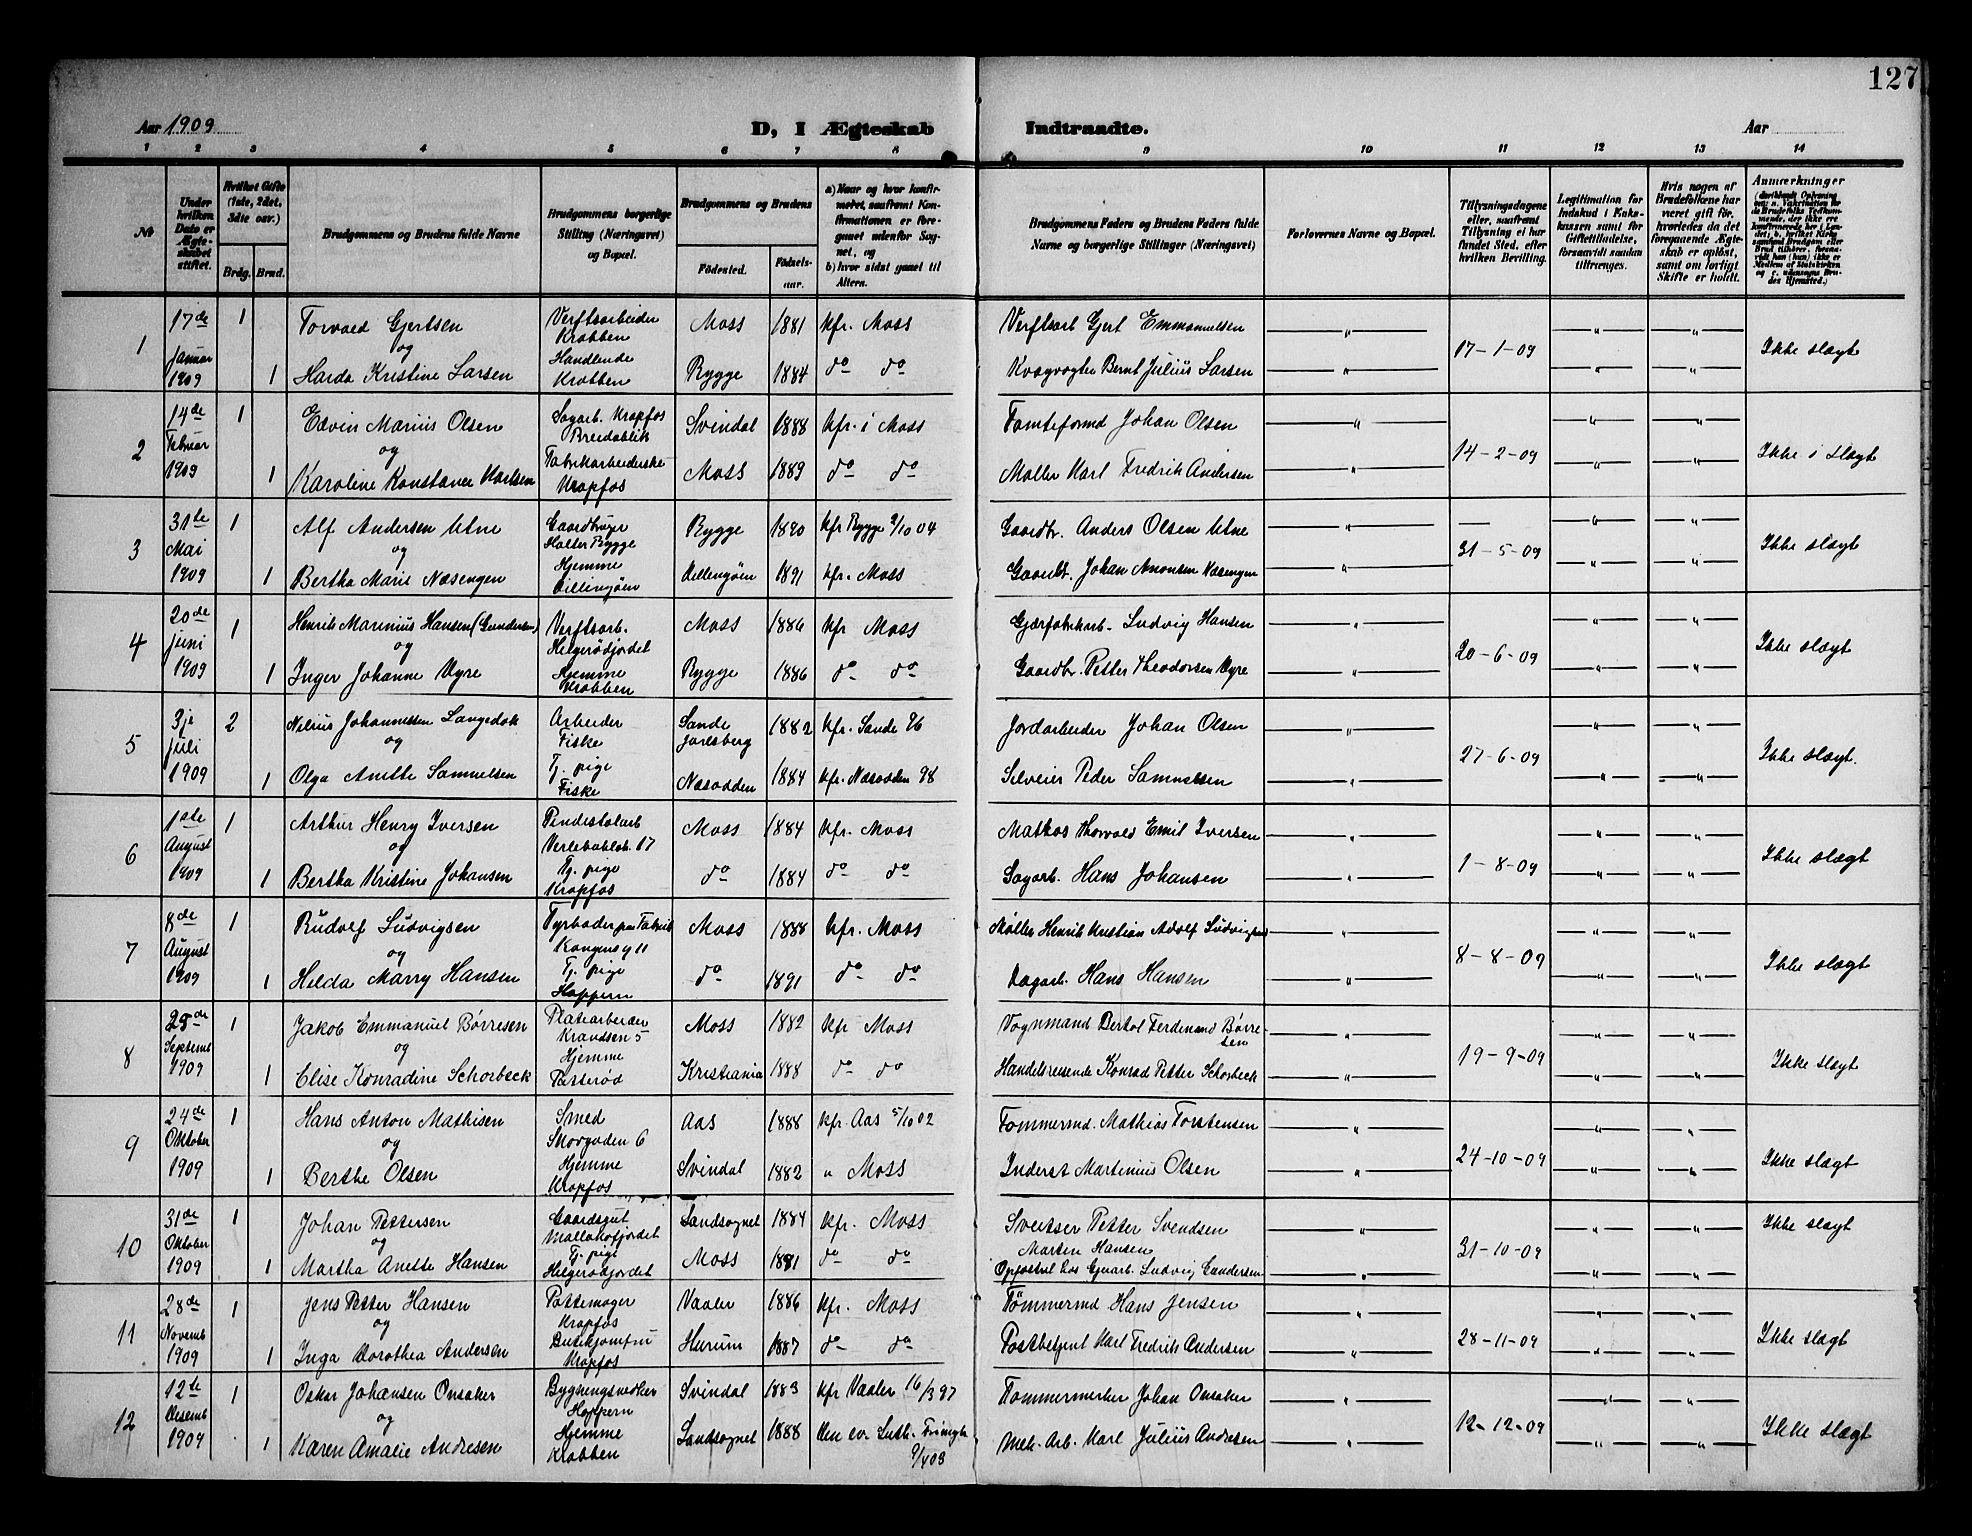 127
Aar 1909
D, I Ægteskab Indtraadte.
Aar
1 2 3 4 5 6 7 8 9 10 11 12 13 14
No
Under hvilken Dato er Ægteskabet stiftet.
Hvilket Gifte (1ste, 2det, 3die osv.)
Brdg. Brud.
Brudgommens og Brudens fulde Navne
Brudgommens borgerlige Stilling (Næringsvei) og Bopæl.
Brudgommens og Brudens
Fødested. Fødsels-aar.
a) Naar og hvor konfirmeret, saafremt Konfirmationen er foregaaet udenfor Sognet, og
b) hvor sidst gaaet til Alters.
Brudgommens Faders og Brudens Faders fulde Navne og borgerlige Stillinger (Næringsvei)
Forlovernes Navne og Bopæl.
Tillysningsdagene eller, saafremt Tillysning ei har fundet Sted, efter hvilken Bevilling.
Legitimation for Indskud i Enkekassen samt for Giftetilladelse, forsaavidt saadan tiltrænges.
Hvis nogen af Brudefolkene har været gift før, hvorledes da det foregaaende Ægteskab er opløst, samt om lovligt Skifte er holdt.
Anmærkninger
1 17de Januar 1909 1 Torvald Gjertsen Verftsarbeider Krabben Moss 1881 kfr. Moss Verftsarb Gjert Emmanuelsen " 17-1-09 " " Ikke slægt
og
1 Harda Kristine Larsen Handlende Krabben Rygge 1884 do do Kvægvogter Bernt Julius Larsen " " "
2 14de Februar 1909 1 Edvin Marius Olsen Sagarb. Krapfos Breidablik Svindal 1888 kfr. i Moss Tomteformd Johan Olsen " 14-2-09 " " Ikke i slægt
og
1 Karoline Konstance Karlsen Fabrikarbeiderske Krapfos Moss 1889 do do Møller Karl Fredrik Andersen " " "
3 31te Mai 1909 1 Alf Andersen Utne Gaardbruger Halter Rygge Rygge 1890 kfr Rygge 2/10 04 Gaardbr. Anders Olsen Utne " 31-5-09 " " Ikke slægt
og
1 Bertha Marie Næsengen Hjemme Dillingøen Dillingøen 1891 kfr. Moss Gaardbr. Johan Amonsen Næsengen " " "
4 20de Juni 1909 1 Henrik Marinius Hansen (Gundersen) Verftsarb. Helgerødjordet Moss 1886 kfr Moss Gjærfabrikarb. Ludvig Hansen " 20-6-09 " " Ikke slægt
og
1 Inger Johanne Dyre Hjemme Krabben Rygge 1886 do do Gaardbr. Petter Theodorsen Dyre " " "
5 3je Juli 1909 2 Nilius Johannessen Langedok Arbeider Fiske Sande Jarlsberg 1882 kfr. Sande 96 Jordarbeider Johan Olsen " 27-6-09 " " Ikke slægt.
og
1 Olga Anette Samuelsen Tj. pige Fiske Næsodden 1884 kfr. Næsodden 98 Selveier Peder Samuelsen " " "
6 1ste August 1909 1 Arthur Henry Iversen Verlebakkeb. 17 Moss 1884 kfr. Moss Matros Thorvald Emil Iversen " 1-8-09 " " Ikke slægt
og
1 Bertha Kristine Johansen Tj. pige Krapfos do 1884 do do Sagarb. Hans Johansen " " "
7 8de August 1909 1 Rudolf Ludvigsen Fyrbøder paa Fabrik Kongensg 11 Moss 1888 kfr. Moss Møller Henrik Kristian Adolf Ludvigsen " 8-8-09 " " Ikke slægt
og
1 Hilda Marry Hansen Tj. pige Hoppern do 1891 do do Dagarb. Hans Hansen " " "
8 25de Septemb 1909 1 Jakob Emmanuel Børresen Platearbeider Krandsen 5 Moss 1882 kfr Moss Vognmand Bertol Ferdinand Børresen " 19-9-09 " " Ikke slægt
og
1 Elise Konradine Schorbeck Hjemme Patterød Kristiania 1888 do do Handelsreisende Konrad Petter Schorbeck " " "
9 24de Oktober 1909 1 Hans Anton Mathisen Smed Skogaden 6 Aas 1888 kfr. Aas 5/10 02 Tømmermd. Mathias Torstensen " 24-10-09 " " Ikke slægt
og
1 Berthe Olsen Hjemme Krapfos Svindal 1882 " Moss Inderst Martinius Olsen " " "
10 31de Oktober 1909 1 Johan Pettersen Gaardsgut Mallakofjordet Landsognet 1884 kfr. Moss Sveitser Petter Svendsen " 31-10-09 " " Ikke slægt
og
1 Martha Anette Hansen Tj. pige Helgerødjordet Moss 1881 do do Morten Hansen Opfostret hos Ludvig Gundersen " " "
11 28de Novemb 1909 1 Jens Petter Hansen Pottemager Krapfos Vaaler 1886 kfr. Moss Tømmermd Hans Jensen " 28-11-09 " " Ikke slægt
og
1 Inga Dorothea Andersen Butikjomfru Krapfos Hurum 1887 do do Postbetjent Karl Fredrik Andersen " " "
12 12te Desemb 1909 1 Oskar Johansen Onsaker Hoppern Svindal 1883 kfr Vaaler 16/3 97 Tømmermerker Johan Onsaker " 12-12-09 " " Ikke slægt
og
1 Karen Amalie Andresen Hjemme Krabben Landsognet 1888 Den ev. Luth. Frimgh 9/4 03 Mek. Arb. Karl Julius Andresen " " "